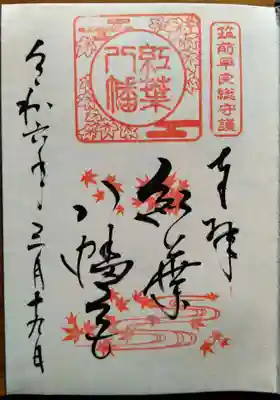 筑前早良総守護
紅葉
八幡
奉拝
紅葉
八幡宮
令和六年三月十九日